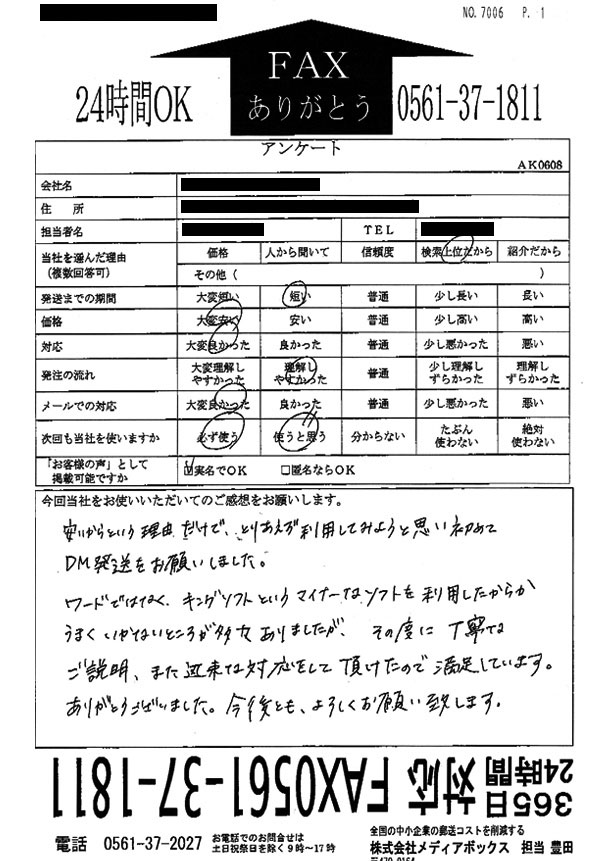 NO. 7006 P. 1
FAX
24時間OK ありがとう 0561-37-1811
アンケート
AK0608
会社名
住 所
担当者名 TEL
当社を選んだ理由 (複数回答可) 価格 人から聞いて 信頼度 検索上位だから 紹介だから
その他( )
発送までの期間 大変短い 短い 普通 少し長い 長い
価格 大変安い 安い 普通 少し高い 高い
対応 大変良かった 良かった 普通 少し悪かった 悪い
発注の流れ 大変理解しやすかった 理解しやすかった 普通 少し理解しずらかった 理解しずらかった
メールでの対応 大変良かった 良かった 普通 少し悪かった 悪い
次回も当社を使いますか 必ず使う 使うと思う 分からない たぶん使わない 絶対使わない
「お客様の声」として掲載可能ですか ☑実名でOK □匿名ならOK
今回当社をお使いいただいてのご感想をお願いします。
安いからという理由だけで、とりあえず利用してみようと思い初めて
DM発送をお願いしました。
ワードではなく、キングソフトというマイナーなソフトを利用したからか
うまくいかないところが多々ありましたが、その度に丁寧な
ご説明、また迅速な対応をして頂けたので満足しています。
ありがとうございました。今後とも、よろしくお願い致します。
365日24時間対応 FAX0561-37-1811
電話 0561-37-2027 お電話でのお問合せは
土日祝祭日を除く9時~17時
全国の中小企業の郵送コストを削減する
株式会社メディアボックス 担当 豊田
〒470-0164